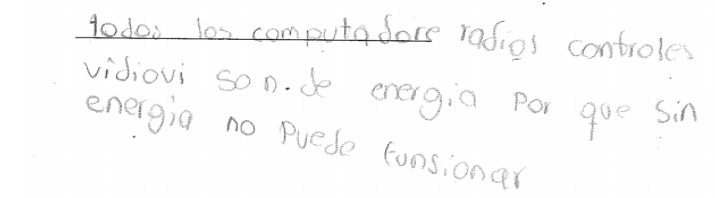 todos los computadore radios controles
vidiovi son.de energia por que sin
energia no puede funsionar